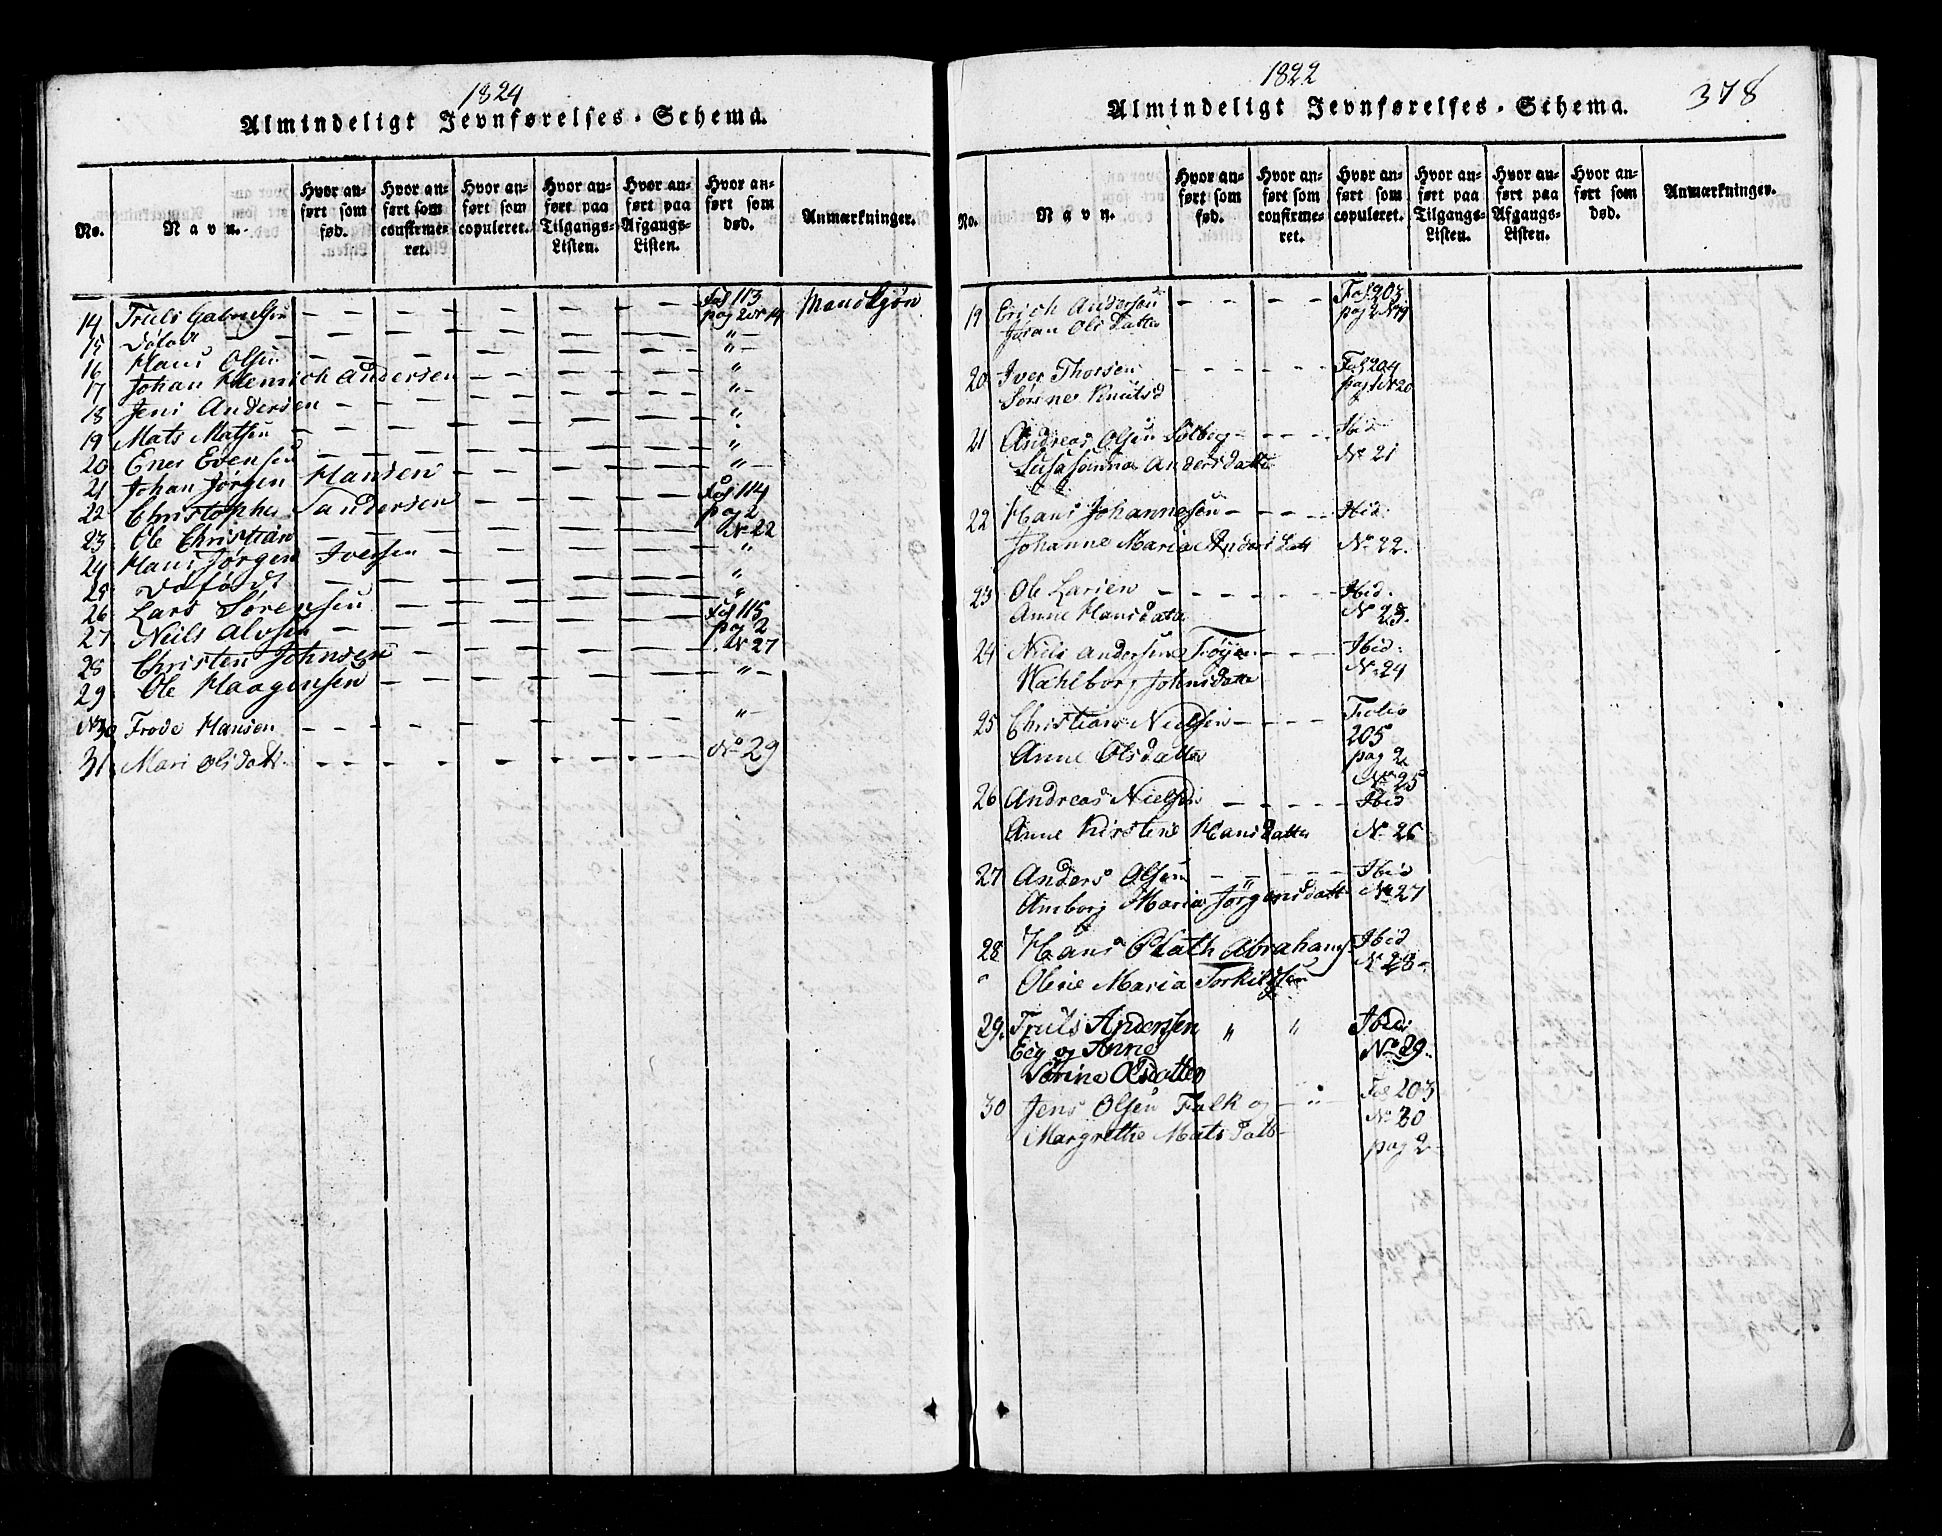 1824
Almindeligt Jevnførelses-Schema.
No.
Navn.
Hvor anført som fød.
Hvor anført som confirmeret.
Hvor anført som copuleret.
Hvor anført paa Tilgangs-Listen.
Hvor anført paa Afgangs-Listen.
Hvor anført som død.
Anmærkninger.
14 Truls Gabrielsen — — — — — Fol 113 Mandkjøn
pag 2 Nr 14
15 Dødfødt — — — — — " —
16 Hans Olsen — — — — — "
17 Johan Henrich Andersen — — — — " —
18 Jens Andersen — — — — — "
19 Mats Matsen — — — — — "
20 Ener Evensen — — — — — " —
21 Johan Jørgen Hansen — — — —
22 Christopher Tandersen — — — Fol 114
pag 2
Nr 22
23 Ole Christian — — — — —
24 Hans Jørgen Iversen — — — — "
25 Dødfødt — — — — — "
26 Lars Sørensen — — — — "
27 Niels Alvsen — — — — — Fol 115
pag 2
Nr 27
28 Christen Johnsen — — — —
29 Ole Haagensen — — — — " —
No 30 Frode Hansen — — — — — " —
31 Mari Olsdatt. — — — — — No 29
1822
378
Almindeligt Jevnførelses-Schema.
No.
Navn.
Hvor anført som fød.
Hvor anført som confirmeret.
Hvor anført som copuleret.
Hvor anført paa Tilgangs-Listen.
Hvor anført paa Afgangs-Listen.
Hvor anført som død.
Anmærkninger.
19 Erich Andersen — — — — Fol 203
Joran Ols Datter pag 2 No 19
20 Iver Thorsen — — — — Fol 204
Sørine Knutsd pag 1 Nr 20
21 Andreas Olsen Solberg — — — Ibid
Andersdatter No 21
22 Hans Johannesen — — — — Ibid:
Johanne Maria Anders Datt No 22.
23 Ole Larsen — — — — Ibid.
Anne Hansdatter No 23.
24 Niels Andersen Trøyen — — — Ibid:
Wahlborg Johnsdatter No 24
25 Christian Nielsen — — — Folio
205
Anne Olsdatter pag 2
No 25
26 Andreas Nielsen — — — — Ibid
Anne Kirstine Hans Datter No 26
27 Anders Olsen — — — — Ibid
Amborg Maria Jørgensdatt No 27
28 Hans Plath Abrahams. Ibid
" Oline Maria Torkildsen No 28 —
29. Truls Andersen " " Ibid:
Eeg og Anne No 29.
Sørine Olsdatter
30 Jens Olsen Falk og — " — Fol 203
No 30
Margrethe Mats Datt — pag 2